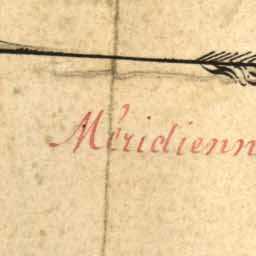 Méridienn